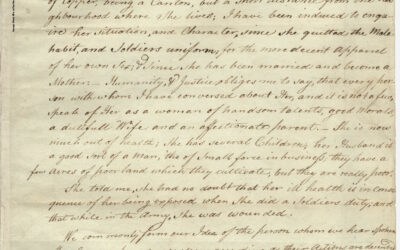 of Copper, being a Canton, but a short distance from the
neighbourhood where She lives; I have been induced to enqui
re her situation, and Character, since she quitted the Male
habit, and Soldiers uniform, for the more decent Apparrel
of her own Sex; & Since she has been married and become a
Mother.— Humanity, & Justice obliges me to say, that every per=
son with whom I have conversed about Her, and it is not a few,
speak of Her as a woman of handsom talents, good Morals,
a dutifull Wife and an affectionate parent.— She is now
much out of health; She has several Children; her Husband is
a good sort of a man, tho' of Small force in business; they have a
few Acres of poor land which they cultivate, but they are really poor.
She told me, she had no doubt that her ill health is in conse
quence of her being exposed when She did a Soldiers duty; and
that while in the Army, She was wounded.
We commonly form our Idea of the person whom we hear spoken
their Actions are described